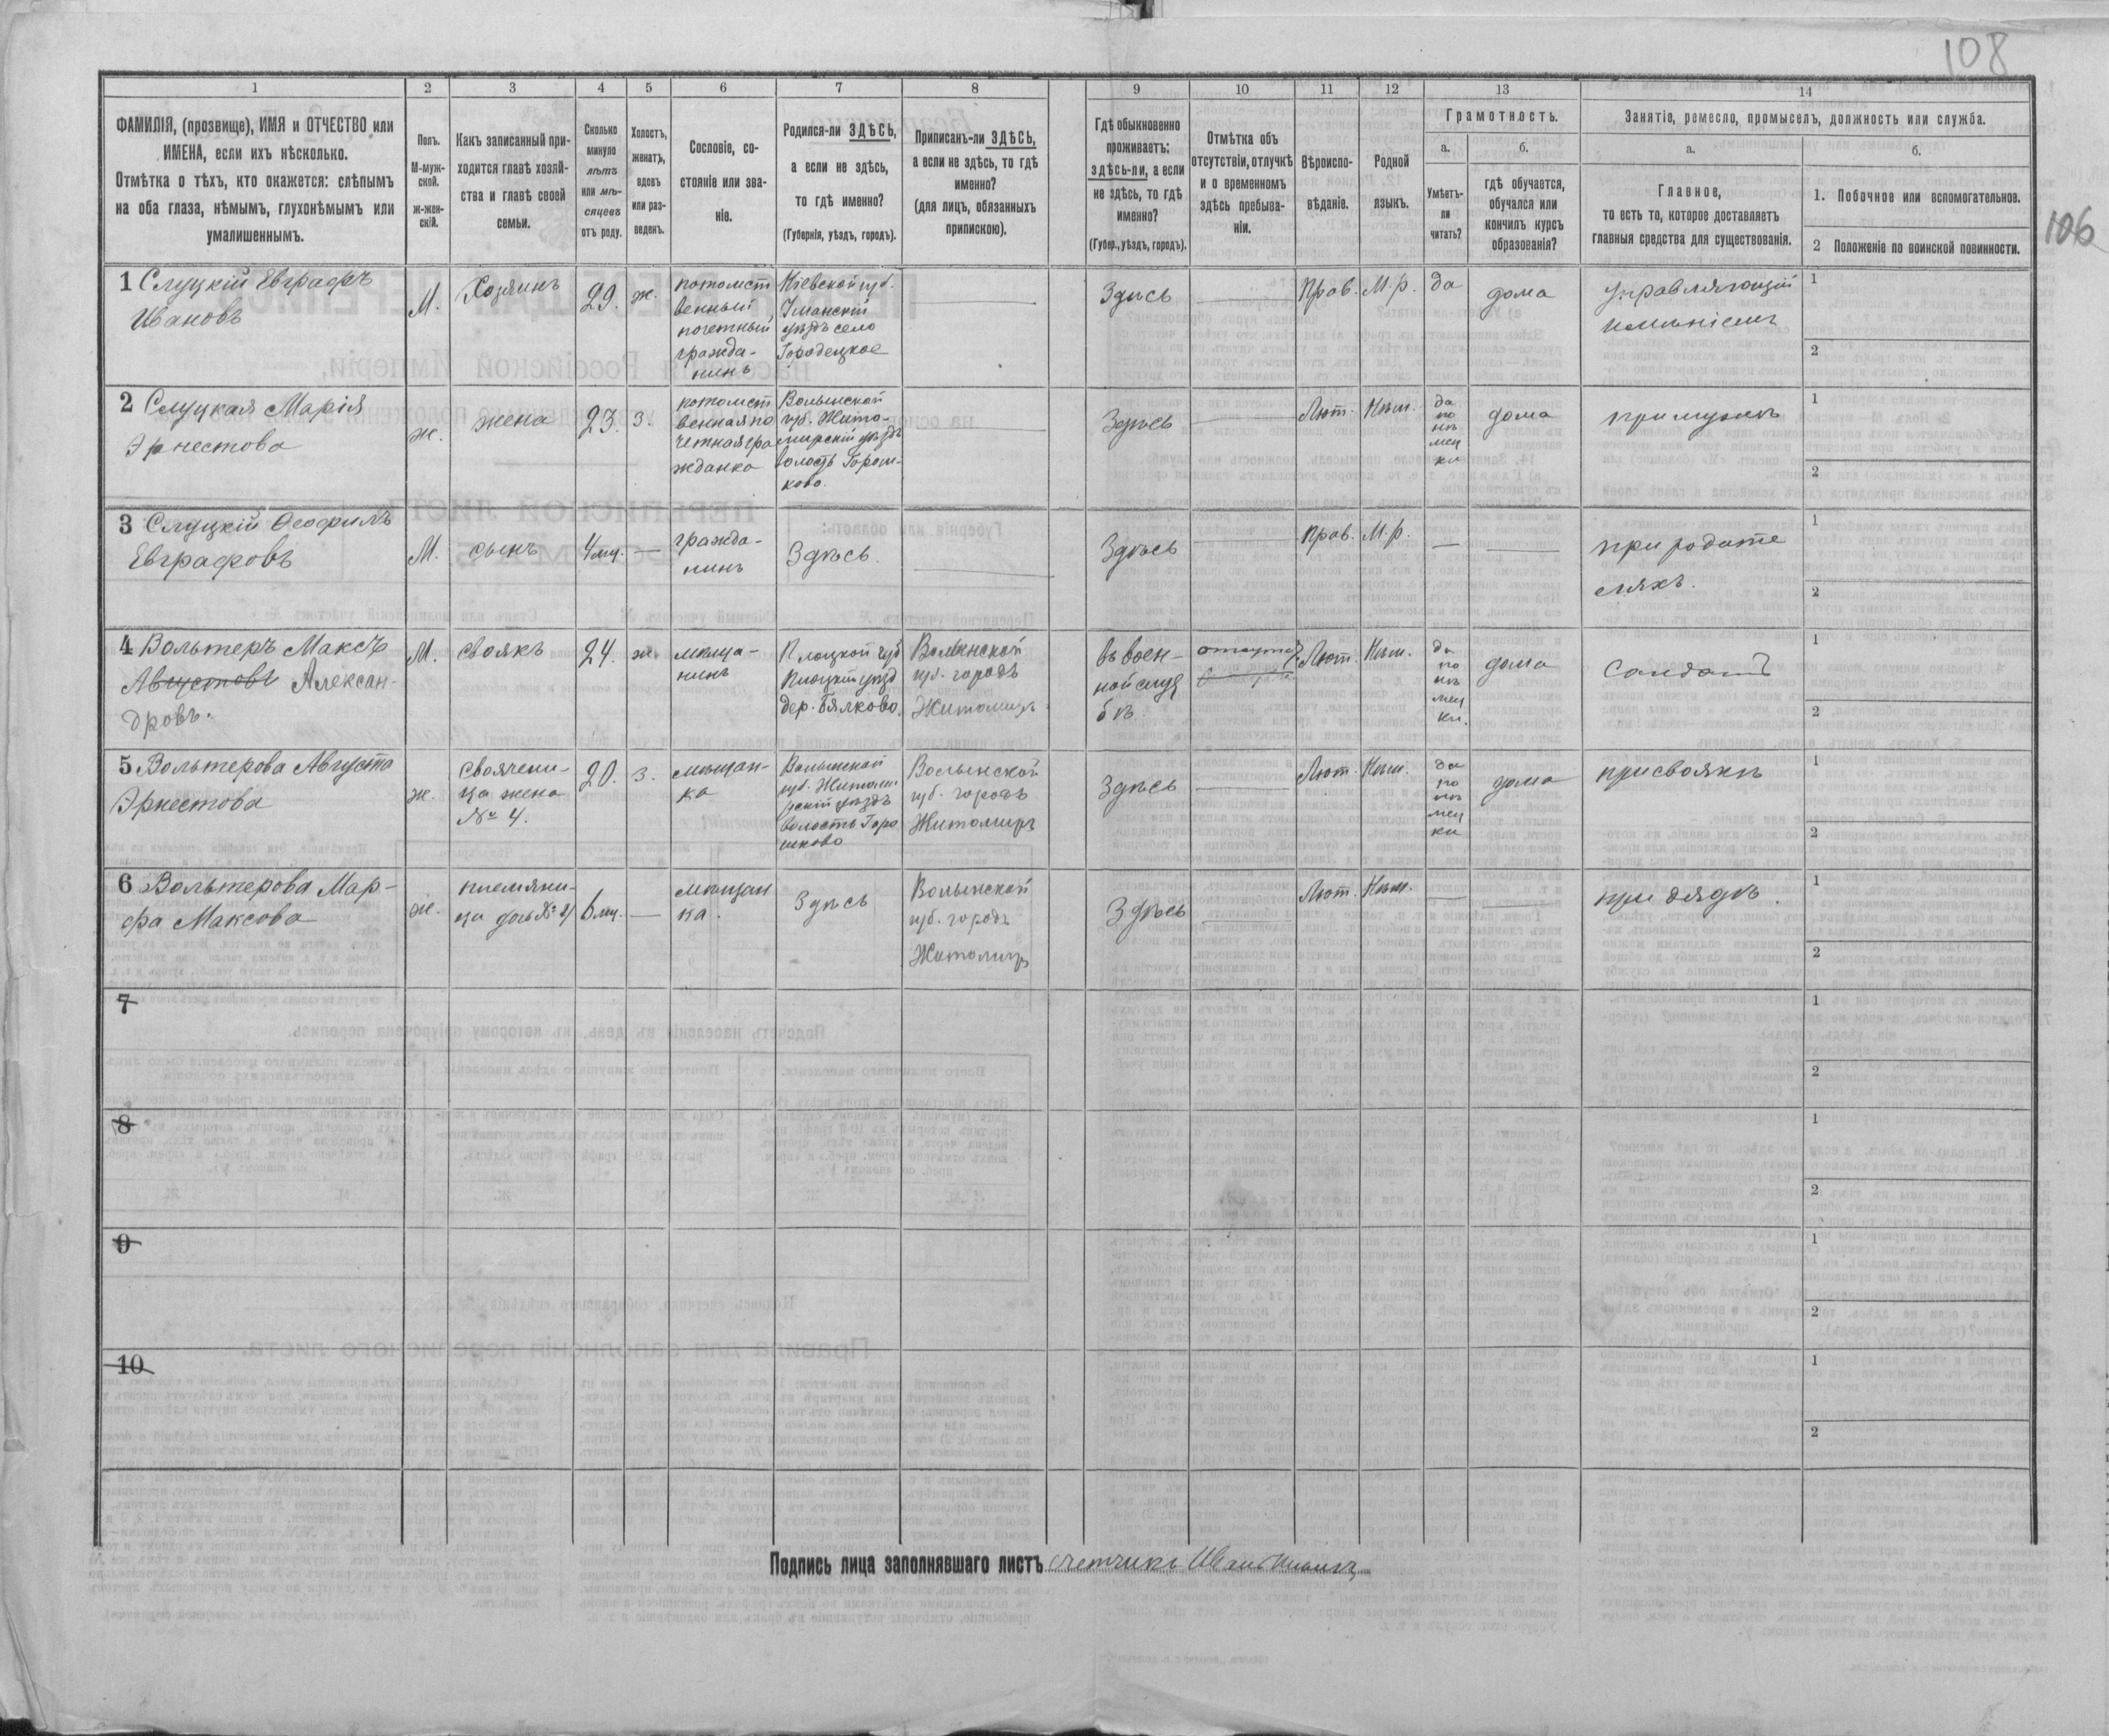 108
106
1
2
3
4
5
6
7
8
9
10
11
12
13
14
ФАМИЛІЯ, (прозвище), ИМЯ и ОТЧЕСТВО или
ИМЕНА, если ихъ нѣсколько.
Отмѣтка о тѣхъ, кто окажется: слѣпымъ
на оба глаза, нѣмымъ, глухонѣмымъ или
умалишеннымъ.
Полъ.
М-муж-
ской.
ж-жен-
скій.
Какъ записанный при-
ходится главѣ хозяй-
ства и главѣ своей
семьи.
Сколько
минуло
лѣтъ
или мѣ-
сяцевъ
отъ роду.
Холостъ,
женатъ,
вдовъ
или раз-
веденъ.
Сословіе, со-
стояніе или зва-
ніе.
Родился-ли ЗДѢСЬ,
а если не здѣсь,
то гдѣ именно?
(Губернія, уѣздъ, городъ).
Приписанъ-ли ЗДѢСЬ,
а если не здѣсь, то гдѣ
именно?
(для лицъ, обязанныхъ
припискою).
Гдѣ обыкновенно
проживаетъ:
здѣсь-ли, а если
не здѣсь, то гдѣ
именно?
(Губер., уѣздъ, городъ).
Отмѣтка объ
отсутствіи, отлучкѣ
и о временномъ
здѣсь пребыва-
ніи.
Вѣроиспо-
вѣданіе.
Родной
языкъ.
Грамотность.
а.
Умѣетъ-
ли
читать?
б.
гдѣ обучается,
обучался или
кончилъ курсъ
образованія?
Занятіе, ремесло, промыселъ, должность или служба.
а.
Главное,
то есть то, которое доставляетъ
главныя средства для существованія.
б.
1. Побочное или вспомогательное.
2 Положеніе по воинской повинности.
1 Слуцкій Евграфъ
Ивановъ
М.
Хозяинъ
29.
ж.
потомст
венный
почетный
гражда-
нинъ
Кіевской губ.
Уманскій
уѣздъ село
Городецкое
Здѣсь
Прав.
М.р.
да
дома
Управляющій
имѣніемъ
1
2
2 Слуцкая Марія
Эрнестова
ж.
жена
23.
з.
потомст
венная по
четная гра
жданка
Волынской
губ. Жито-
мирскій уѣздъ
волость Горош-
ково.
Здѣсь
Лют.
Нѣм.
да
по
нѣ
мец
ки
дома
при мужѣ
1
2
3 Слуцкій Ѳеофилъ
Евграфовъ
М.
сынъ
4 мц.
—
гражда-
нинъ
Здѣсь.
Здѣсь
Прав.
М.р.
—
при родите
ляхъ.
1
2
4 Вольтеръ Максъ
Августовъ Алексан-
дровъ.
М.
своякъ
24.
ж.
мѣща-
нинъ
Плоцкой губ
Плоцкій уѣзд
дер. Бялково.
Волынской
губ. городъ
Житомиръ
въ воен-
ной служ
бѣ.
Лют.
Нѣм.
да
по
нѣ
мец
ки.
дома
Солдатъ
1
2
5 Вольтерова Августа
Эрнестова
ж.
Своячени-
ца жена
№ 4.
20.
з.
мѣщан-
ка
Волынской
губ. Житоми
рскій уѣздъ
волость Горо
шково
Волынской
губ. городъ
Житомиръ
Здѣсь
Лют.
Нѣм.
да
по
нѣ
мец
ки
дома
при своякѣ
1
2
6 Вольтерова Мар-
фа Максова
ж.
племяни-
ца дочь № 4
6 мц.
—
мѣщан
ка.
Здѣсь
Волынской
губ. городъ
Житомиръ
Здѣсь
Лют.
Нѣм.
—
при дядѣ.
1
2
7
1
2
8
1
2
9
1
2
10
1
2
Подпись лица заполнявшаго листъ счетчикъ Иванъ